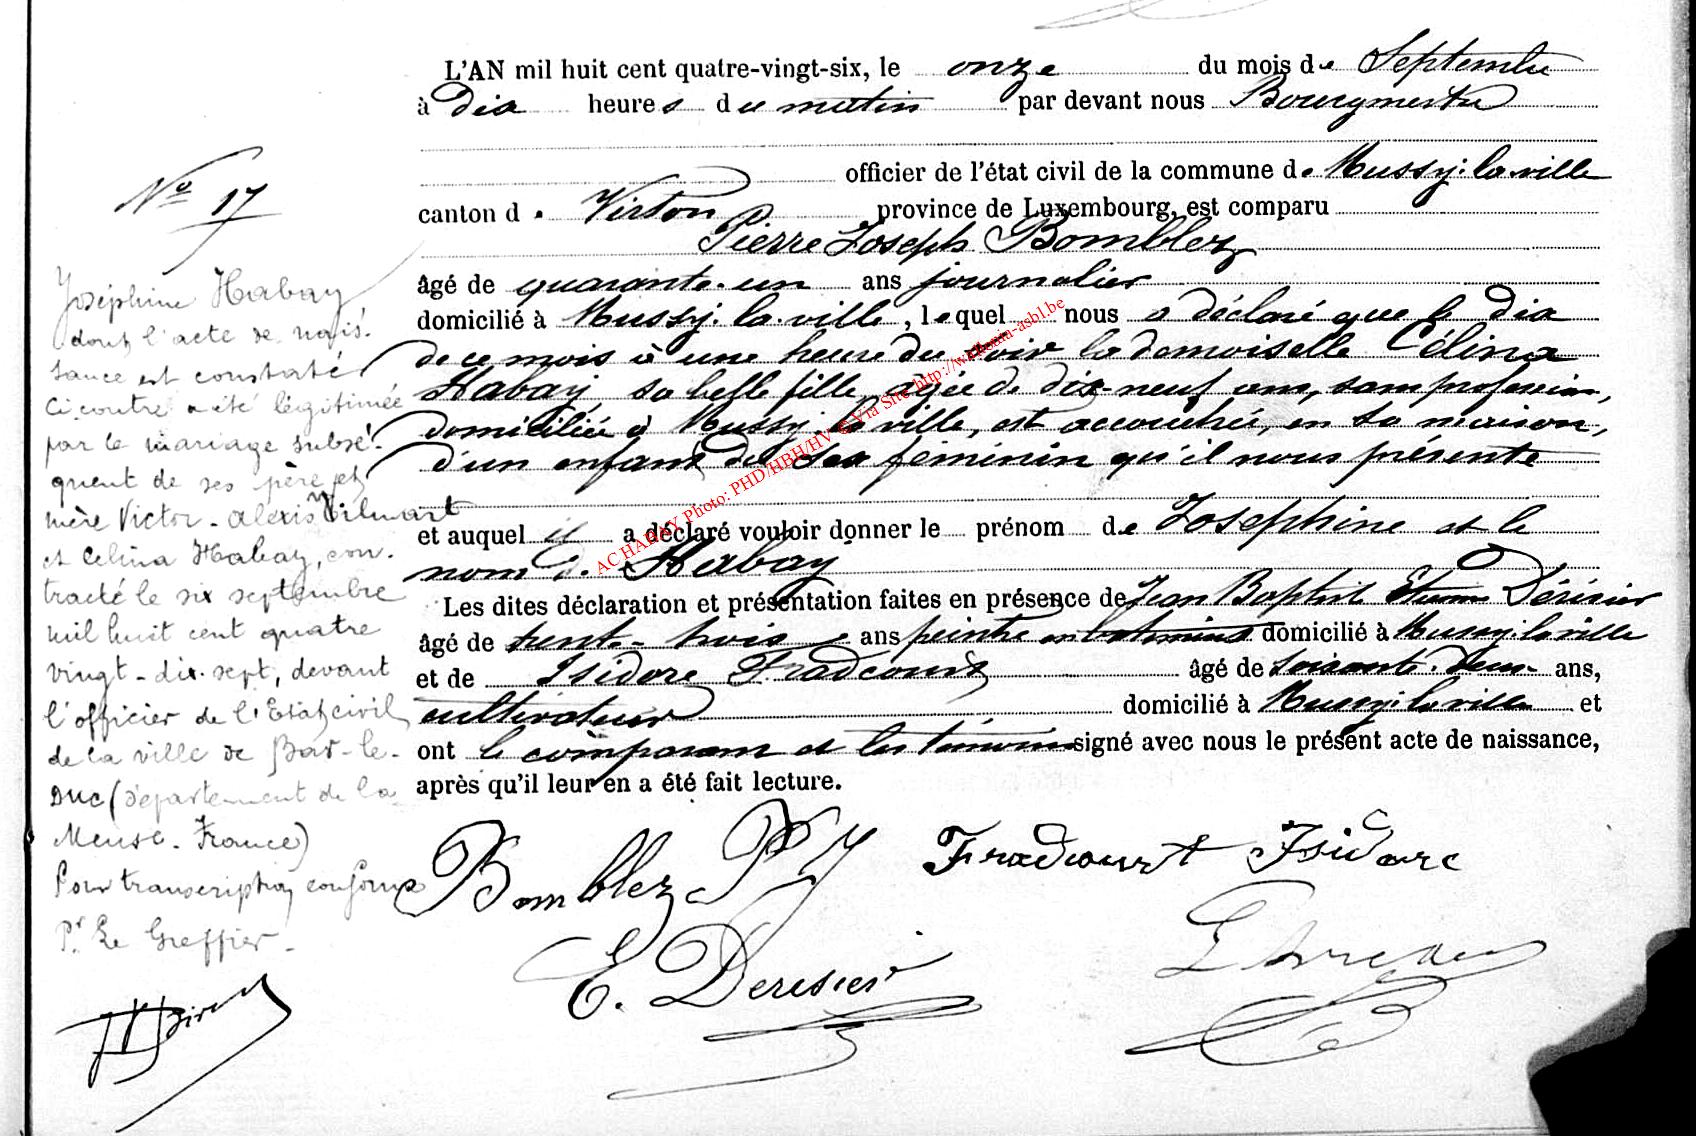 L'AN mil huit cent quatre-vingt-six, le onze du mois de Septembre
à Dix heures du matin par devant nous Bourgmestre
officier de l'état civil de la commune de Mussy-la-ville
canton de Virton province de Luxembourg, est comparu
Pierre Joseph Bomblez
âgé de quarante-un ans journalier
domicilié à Mussy-la-ville, lequel nous a déclaré que le Dix
de ce mois à une heure du soir la demoiselle Célina
Habay sa belle fille, âgée de dix-neuf ans, sans profession,
domiciliée à Mussy-la-ville, est accouchée, en sa maison,
d'un enfant du sex féminin qu'il nous présente
et auquel il a déclaré vouloir donner le prénom de Josephine et le
nom de Habay
Les dites déclaration et présentation faites en présence de Jean Baptiste Etienne Dérisier
âgé de trente-trois ans peintre en batiment domicilié à Mussy-la-ville
et de Isidore Fradcourt âgé de soixante-deux ans,
cultivateur domicilié à Mussy-la-ville et
ont le comparant et les témoins signé avec nous le présent acte de naissance,
après qu'il leur en a été fait lecture.
Bomblez P J Fradcourt Isidore
E. Derisier
N° 17
Joséphine Habay
dont l'acte de nais-
sance est constaté
ci-contre a été légitimée
par le mariage subsé-
quent de ses père et
mère Victor-Alexis Vilmart
et Célina Habay, con-
tracté le six septembre
mil huit cent quatre
vingt-dix-sept, devant
l'officier de l'Etat civil
de la ville de Bar-le-
Duc (département de la
Meuse-France)
Pour transcription conforme
Pr. Le Greffier-
AC HABAY Photo: PHD/HBH/HV © Via Site http://wallonia-asbl.be